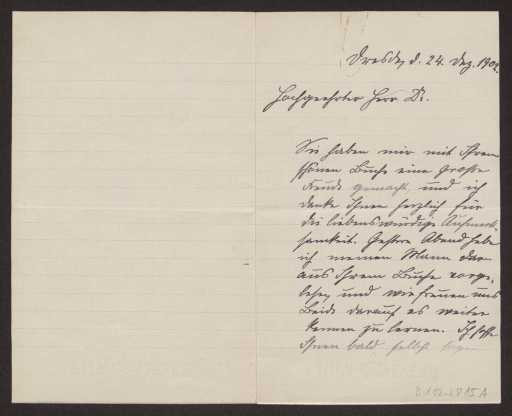 Dresden d. 24. Dez. 1902.
Hochgeehrter Herr Dr.
Sie haben mir mit Ihrem
schönen Buche eine große
Freude gemacht, und ich
danke Ihnen herzlich für
die liebenswürdige Aufmerk-
samkeit. Gestern Abend habe
ich meinem Mann dar-
aus Ihrem Buche vorge-
lesen und wir freuen uns
Beide darauf es weiter
kennen zu lernen. Ich hoffe
Ihnen bald selbst sagen